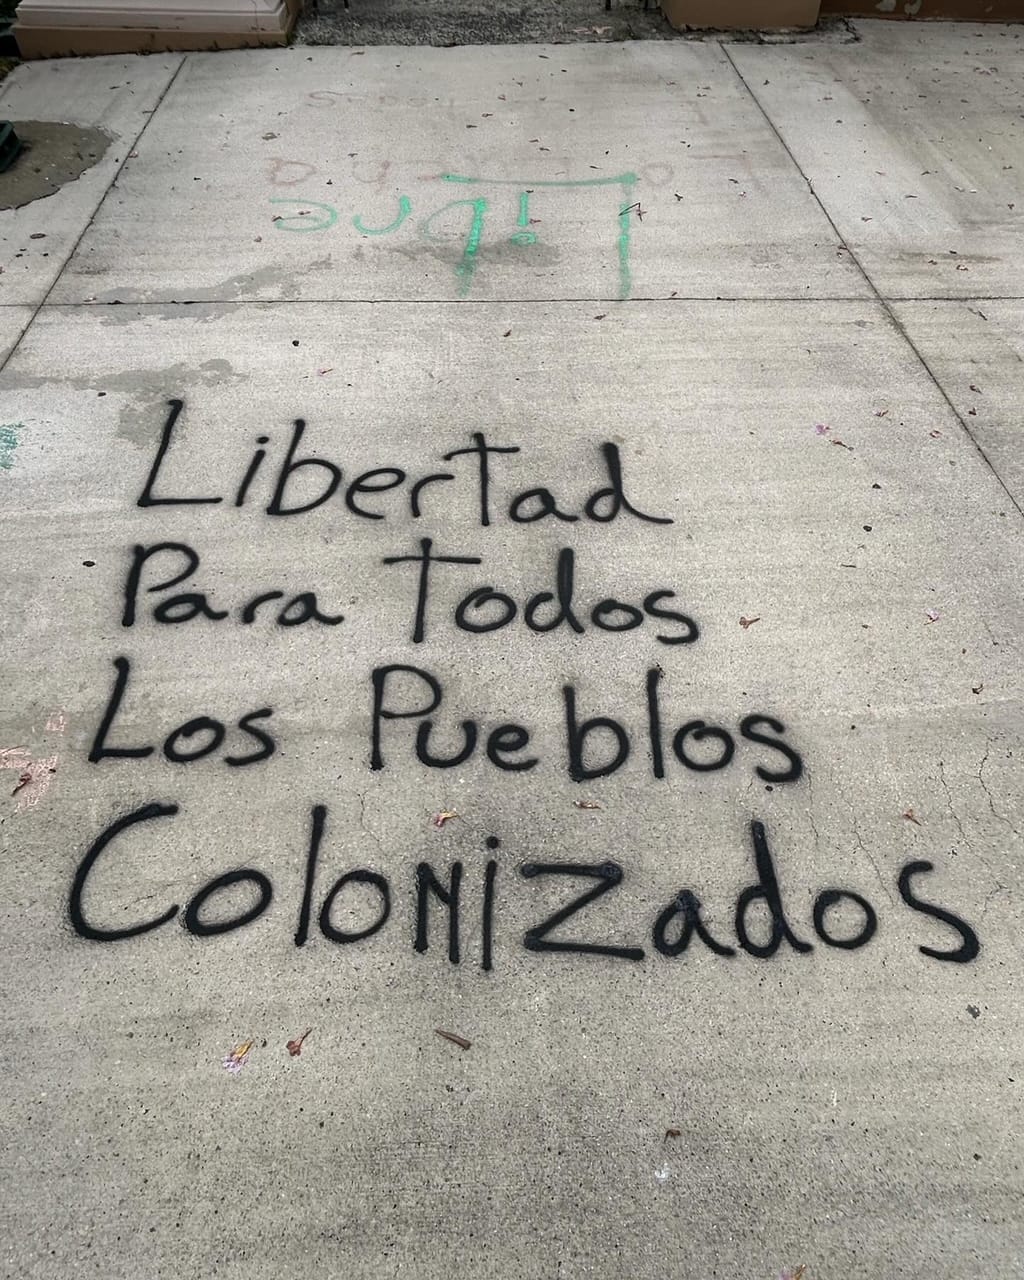 Libre
Libertad
Para Todos
Los Pueblos
Colonizados